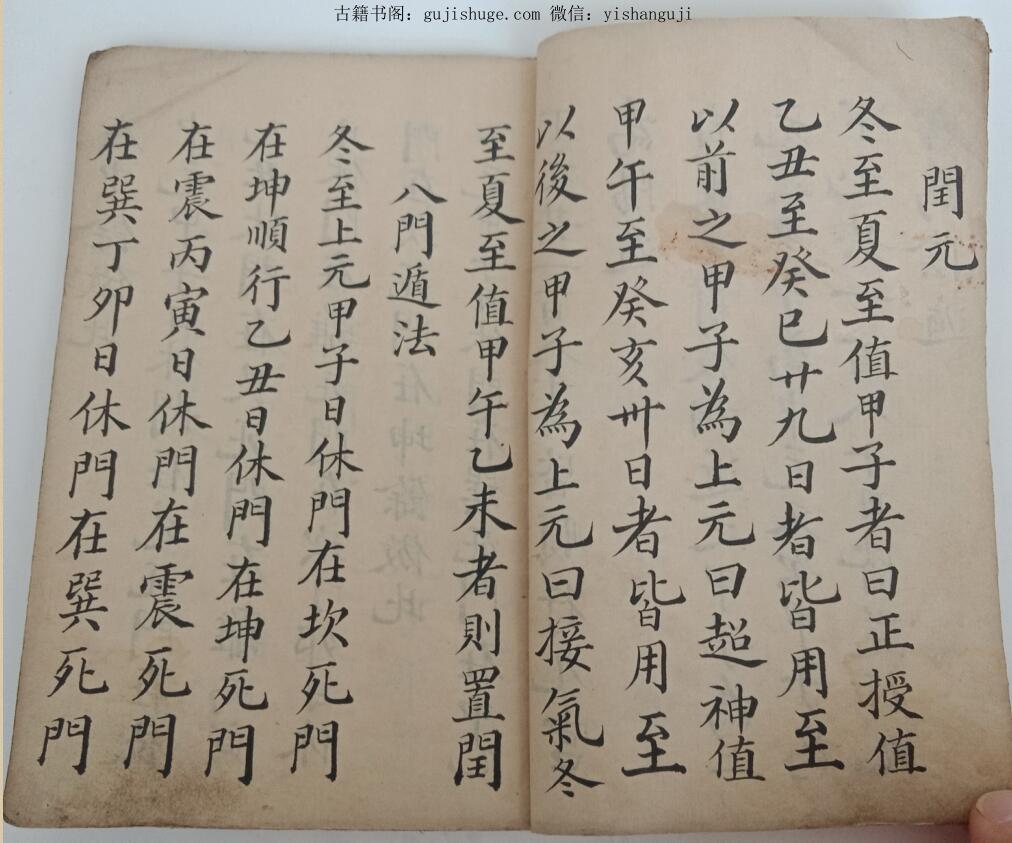 古籍书阁：gujishuge.com 微信：yishanguji
閏元
冬至夏至值甲子者曰正授值
乙丑至癸巳廿九日者皆用至
以前之甲子為上元曰超神值
甲午至癸亥卅日者皆用至
以後之甲子為上元曰接氣冬
至夏至值甲午乙未者則置閏
八門遁法
冬至上元甲子日休門在坎死門
在坤順行乙丑日休門在坤死門
在震丙寅日休門在震死門
在巽丁卯日休門在巽死門